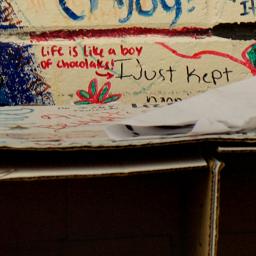 Enjoy!
Life is like a box
of chocolates!
I Just Kept